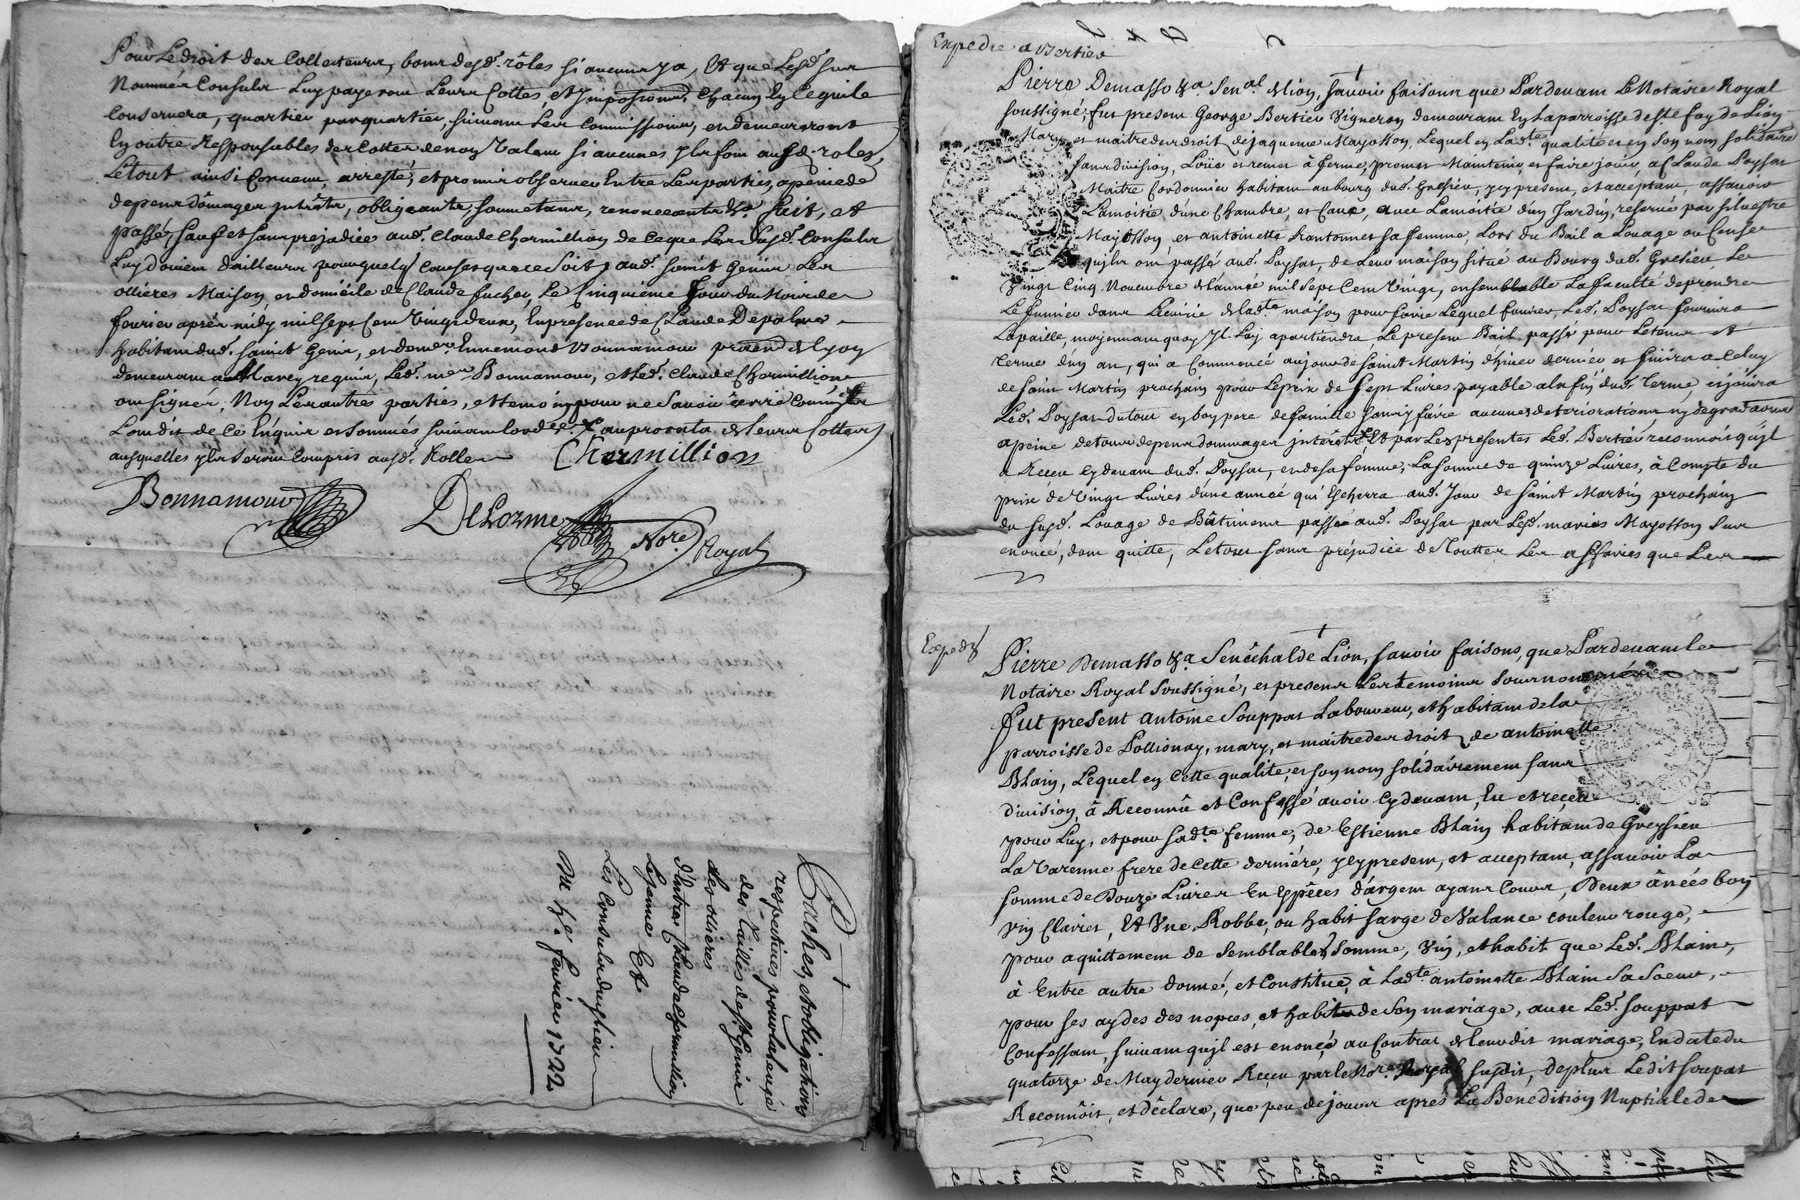 Pour Le droit des Collecteurs, bons desd. rôles si aucuns y a, Et que Lesd. srs
Nommés Consuls Luy payeron Leurs Cottes, et Impositions, Chacun En Ce qui le
Consernera, quartier par quartier, suivant Leur Commissions, et demeureront
En outre Responsables des Cottes de non Valeur si aucunes y la sont ausd. roles,
Le tout ainsi Convenu, arresté, et promis observer Entre Les parties, apeine de
depens dômages Intérêts, obligeants, soumetans, renonceants &c. fait, et
passé, sauf et sans prejudice aud. Claude Chermillion de Ce que Les susd. Consuls
Luy doivent d'ailleurs pour quelq. Causes que ce soit, aud. sainct Genis Les
ollieres Maison et domicile de Claude fucher, Le Cinquieme Jour du Mois de
fevrier après midy mil sept Cent Vingt deux, En presence de Claude Depalme
habitant dud. sainct Genis, et de Mer. Ennemond Bonnamour pratn. de Lyon
demeurant a Marcy requis, Led. mer. Bonnamour, et Led. Claude Chermillion
ont signés, Non Les autres parties, et temoin pour ne Savoir
Lourdit de Ce Enquis et Sommés suivant lord. au prorata de leurs Cottes
ausquelles yls seront Compris ausd. Rolles Chermillion
Bonnamour DeLorme Nore. Royal
Baches, et obligations
respectives pour la levée
des Tailles de St. Genis
Les ollieres
d'Entre Claude Chermillion
Lejeune Et
Les Consuls dud. lieu
Du 5e. fevrier 1722
Expedié a Bertier
Pierre Demasso &a Senal. de Lion, sçavoir faisons que Pardevant Le Notaire Royal
soussigné, fut present George Bertier Vigneron demeurant En La parroisse de Ste foy de Lion
Mary, et maitre des droit de jaqueme Mayosson, Lequel en Lade. qualité et en son nom solidaire
sans division, Loüe et remet à ferme, promet Maintenir et faire jouir, a Claude Poyssat
Maitre Cordonnier habitant au bourg dud. Gresieu, y cy present, et acceptant, assavoir
La moitié d'une Chambre, et Cave, avec La moitié d'un Jardin, reservé par silvestre
Mayosson et antoinette sa femme, Lors du Bail a Louage ou Cense
qu'yls ont passé aud. Poyssat, de Leur maison situé au Bourg dud. Gresieu Le
Vingt Cinq Novembre de L'année mil sept Cent Vingt, ensemble La faculté de prendre
Le fumier dans L'ecurie de Lade. maison pour faire Lequel fumier, Led. Poyssat fournira
La paille, moyennant quoy Yl Luy apartiendra Le present Bail passé pour Le tems et
terme d'un an, qui a Commencé au jour de saint Martin d'hiver dernier et finira a Celuy
de saint Martin prochain pour Le prix de sept Livres payable a la fin dud. terme, en joüira
Led. Poyssat du tout en bon pere de famille sans y faire aucunes deteriorations, ny degradations
a peine de tous depens dommages interêts, Et par Les presentes Led. Bertier reconnoit qu'yl
a Receu Cy devant dud. Poyssat, et de sa femme, La somme de quinze Livres, à Compte du
prix de Vingt Livres d'une année qui Echerra aud. Jour de sainct Martin prochain
du susd. Louage de Bâtiment passé aud. Poyssat par Lesd. mariés Mayosson Sus
enoncé, dont quitte, Le tout sans préjudice de Touttes Les affaires que Les
Expedé
Pierre Demasso &a Senêchal de Lion, sçavoir faisons, que Pardevant Le
Notaire Royal Soussigné, et presens Les temoins Sousnommés
Fut present antoine Souppat Laboureur, et habitant de la
parroisse de Pollionay, mary, et maitre des droit de antoinette
Blain, Lequel en Cette qualité, et son nom solidairement sans
division, à Reconnû et Confessé avoir Cy devant, Eu et reçeu
pour Luy, et pour sade. femme, de Estienne Blain habitant de Greysieu
La Varenne frere de Cette derniére, y cy present, et acceptant, assavoir La
somme de Douze Livres En Espêces d'argent ayant Cours, Deux ânées bon
vin Clairet, Et Une Robbe, ou habit sarge de Valance couleur rouge,
pour aquittement de semblables Somme, Vin, et habit que Led. Blain,
à Entre autre donné, et Constitué, à Lade. antoinette Blain Sa Soeur,
pour ses aydes des nopces, et habits de Son mariage, avec Led. Souppat
Confessant, suivant qu'jl est enoncé au Contrat de leurdit mariage, En date du
quatorze de May dernier Reçeu par le Nore. Royal susdit, de plus Le dit soupat
Reconnoit, et dêclare, que peu de jour après La Benediction Nuptiale de